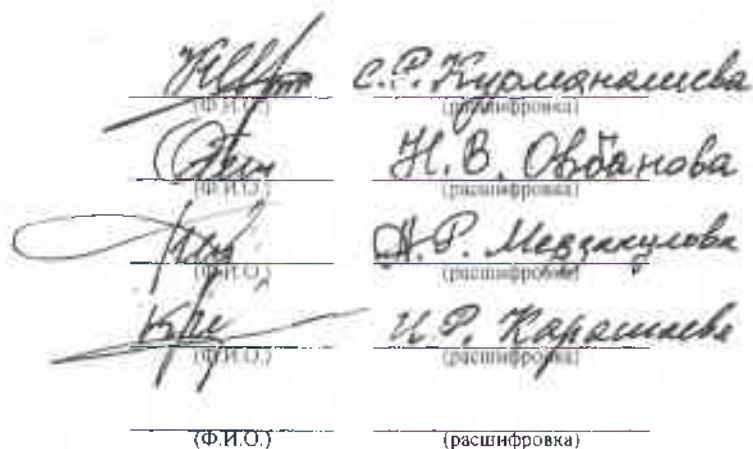 С.Р. Курманалиева
(Ф.И.О.) (расшифровка)
Н.В. Овбанова
(Ф.И.О.) (расшифровка)
Н.Р. Мерзакулова
(Ф.И.О.) (расшифровка)
И.Р. Карашаева
(Ф.И.О.) (расшифровка)
(Ф.И.О.) (расшифровка)